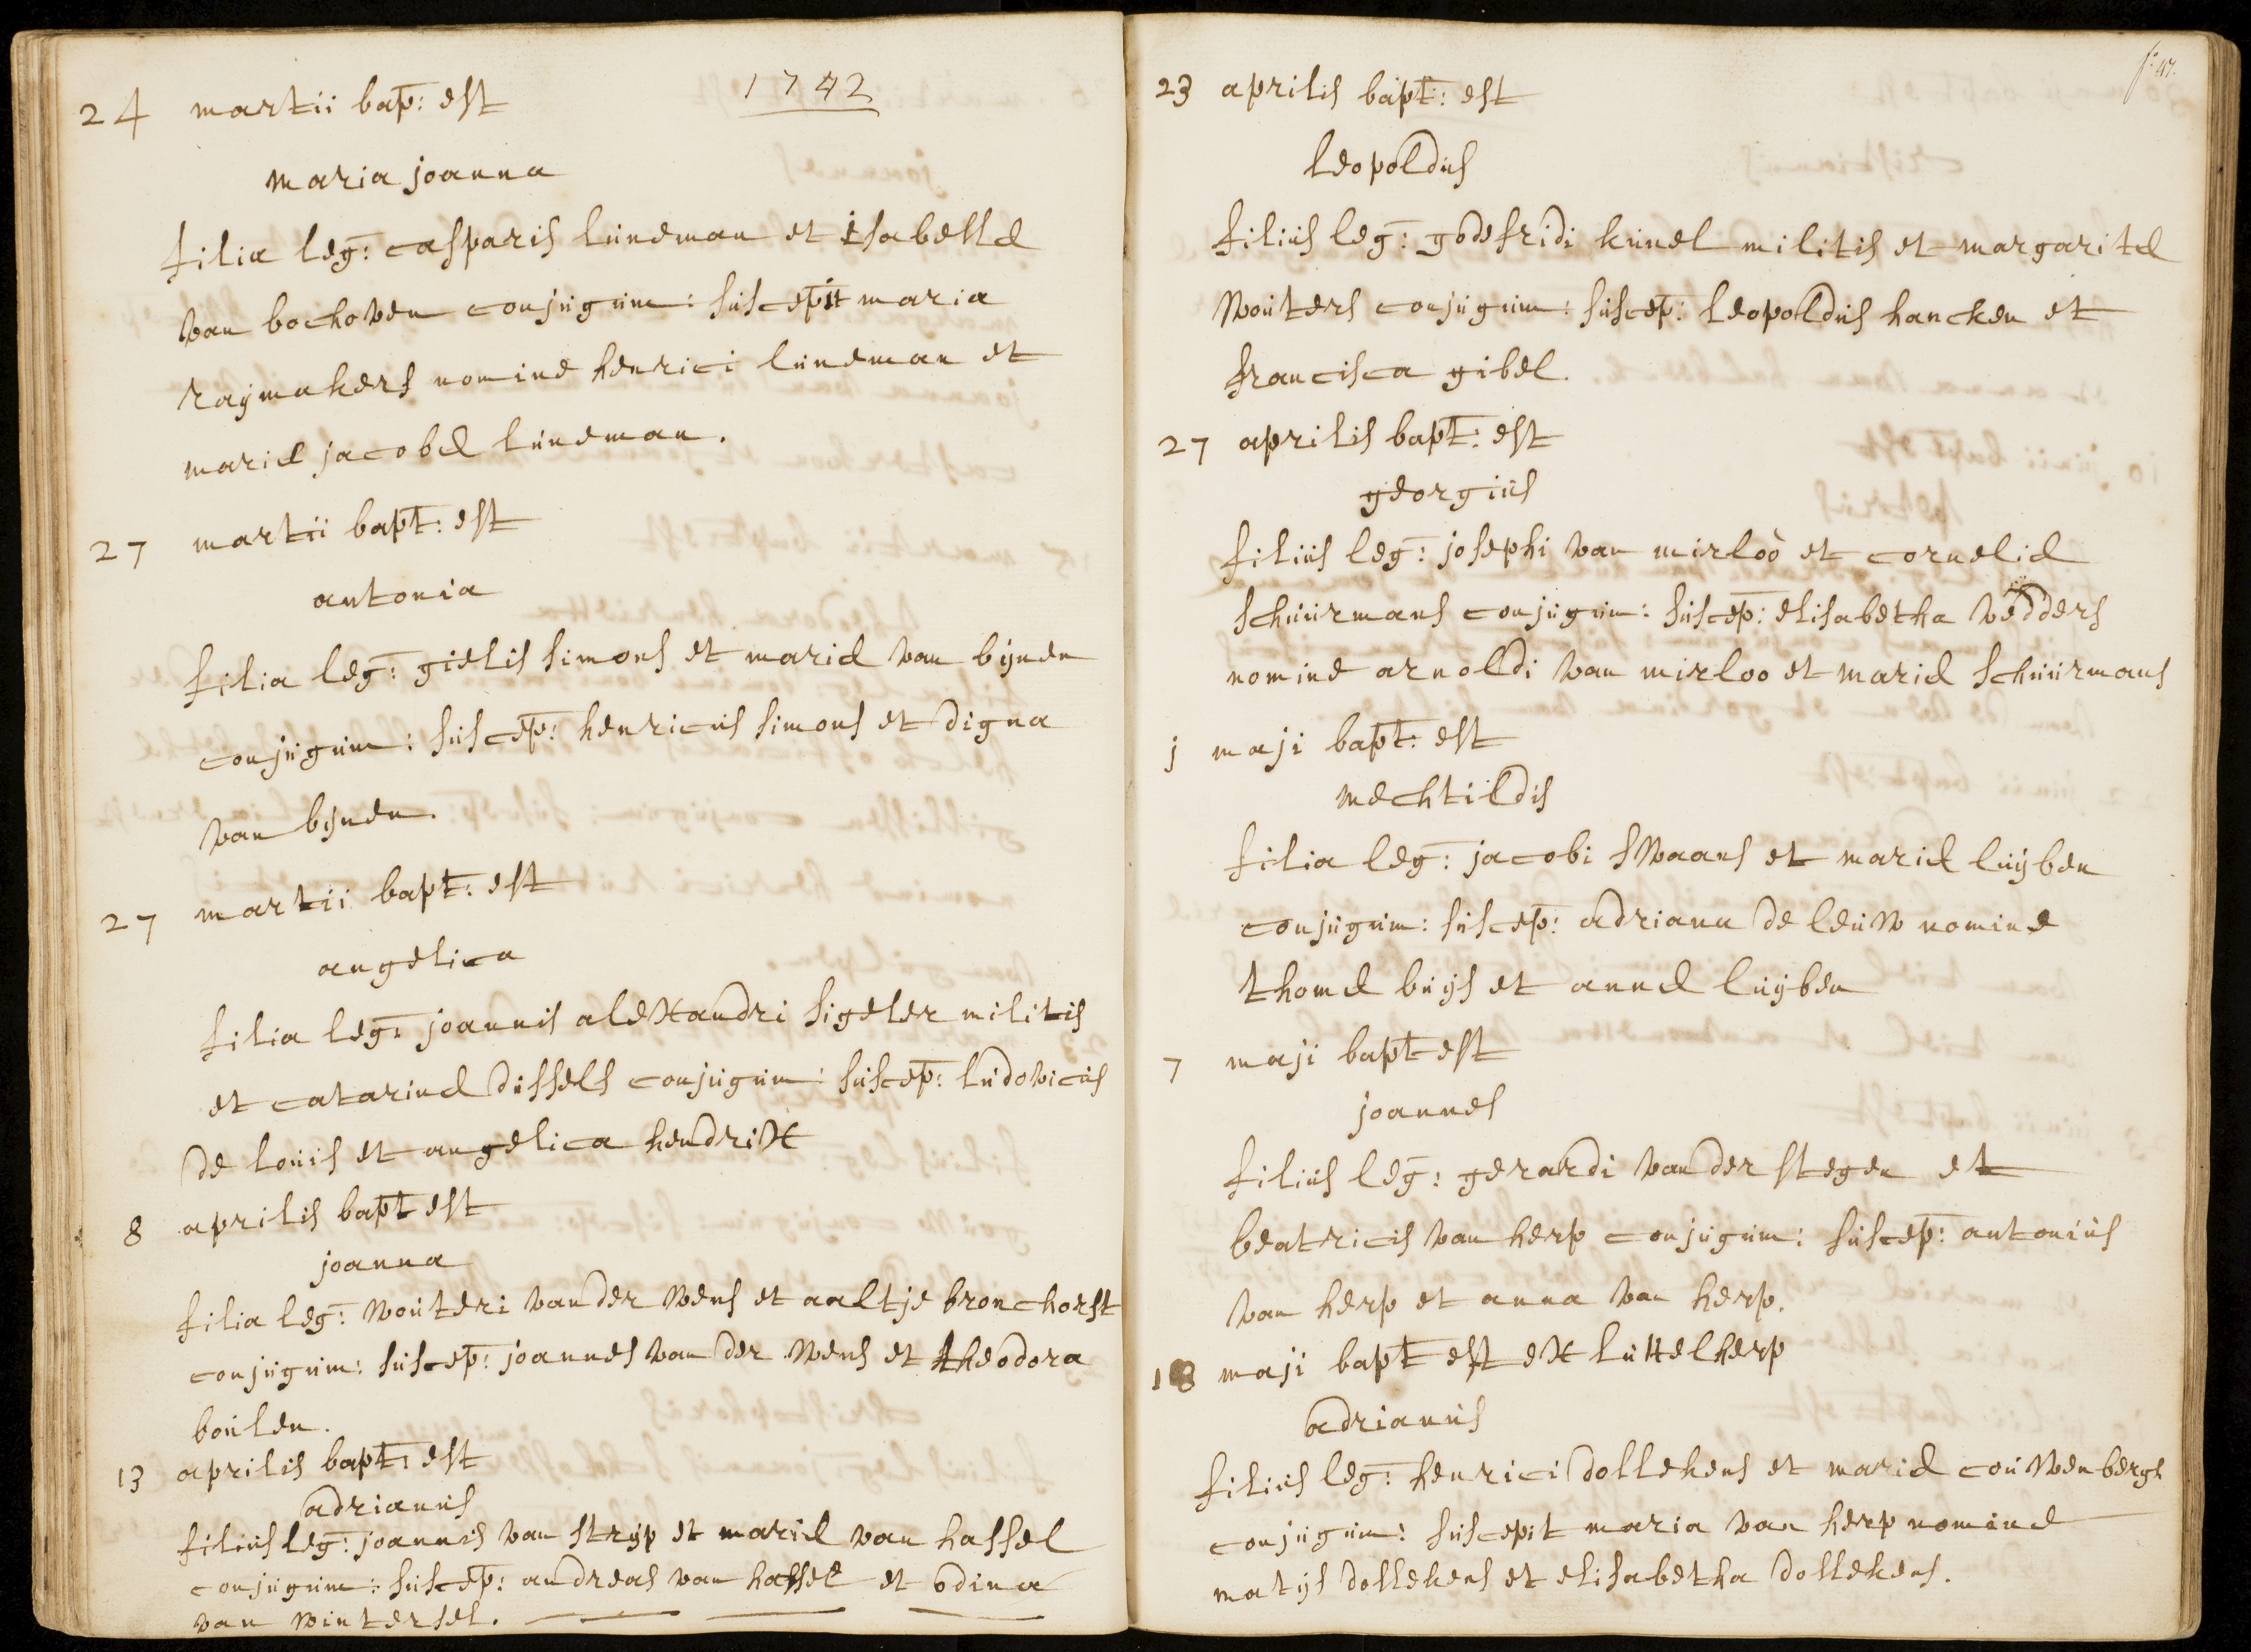 1742
24 martii bap: est
maria joanna
filia leg: casparis lüneman et isabellæ
van bochoven conjügüm: süscepit maria
raÿmakers nomine henrici lüneman et
mariæ jacobæ lüneman.
27 martii bapt: est
antonia
filia leg: gielis simons et mariæ van bijnen
conjügüm: süscep: henricüs simons et digna
van bijnen.
27 martii bapt: est
angelica
filia leg: joannis alexandri sigeler militis
et catarinæ dissels conjügüm: süscep: lüdovicüs
de loüis et angelica hendrix
8 aprilis bapt est
joanna
filia leg: woüteri van der wens et aaltje bronchorst
conjügüm: süscep: joannes van der wens et theodora
boülen.
13 aprilis bapt: est
adrianüs
filiüs leg: joannis van strijp et mariæ van hassel
conjügüm: süscep: andreas van hassel et odina
van wintersel.
f: 47.
23 aprilis bapt: est
leopoldüs
filiüs leg: godefridi künel militis et margaritæ
woüters conjügüm: süscep: leopoldüs hancken et
francisca gibel.
27 aprilis bapt: est
georgiüs
filiüs leg: josephi van mirloo et corneliæ
schüürmans conjügüm: süscep: elisabetha vedders
nomine arnoldi van mirloo et mariæ schüürmans
j maji bapt: est
mechtildis
filia leg: jacobi swaans et mariæ lüijben
conjügüm: süscep: adriana de leüw nomine
thomæ büijs et annæ lüijben
7 maji bapt est
joannes
filiüs leg: gerardi van der stegen et
beatricis van herp conjügüm: süscep: antoniüs
van herp et anna van herp.
18 maji bapt est ex lüttelherp
adrianüs
filiüs leg: henrici dollekens et mariæ coüwenbergh
conjügüm: süscepit maria van herp nomine
matijs dollekens et elisabetha dollekens.